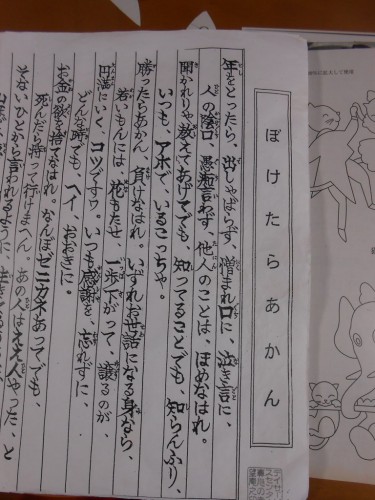 ぼけたらあかん
年をとったら、出しゃばらず、憎まれ口に、泣き言に、
人の陰口、愚痴言わず、他人のことは、ほめなはれ。
聞かれりゃ教えてあげてでも、知ってることでも、知らんふり、
いつも、アホで、いるこっちゃ。
勝ったらあかん、負けなはれ。いずれお世話になる身なら、
若いもんには 花もたせ、一歩下がって 譲るのが、
円満にいく、コツですワ。いつも感謝を、忘れずに、
どんな時でも、ヘイ、おおきに。
お金の欲を捨てなはれ。なんぼゼニカネあってでも、
死んだら持って行けまへん。あの人はええ人やった、と
そないひとから言われるように、